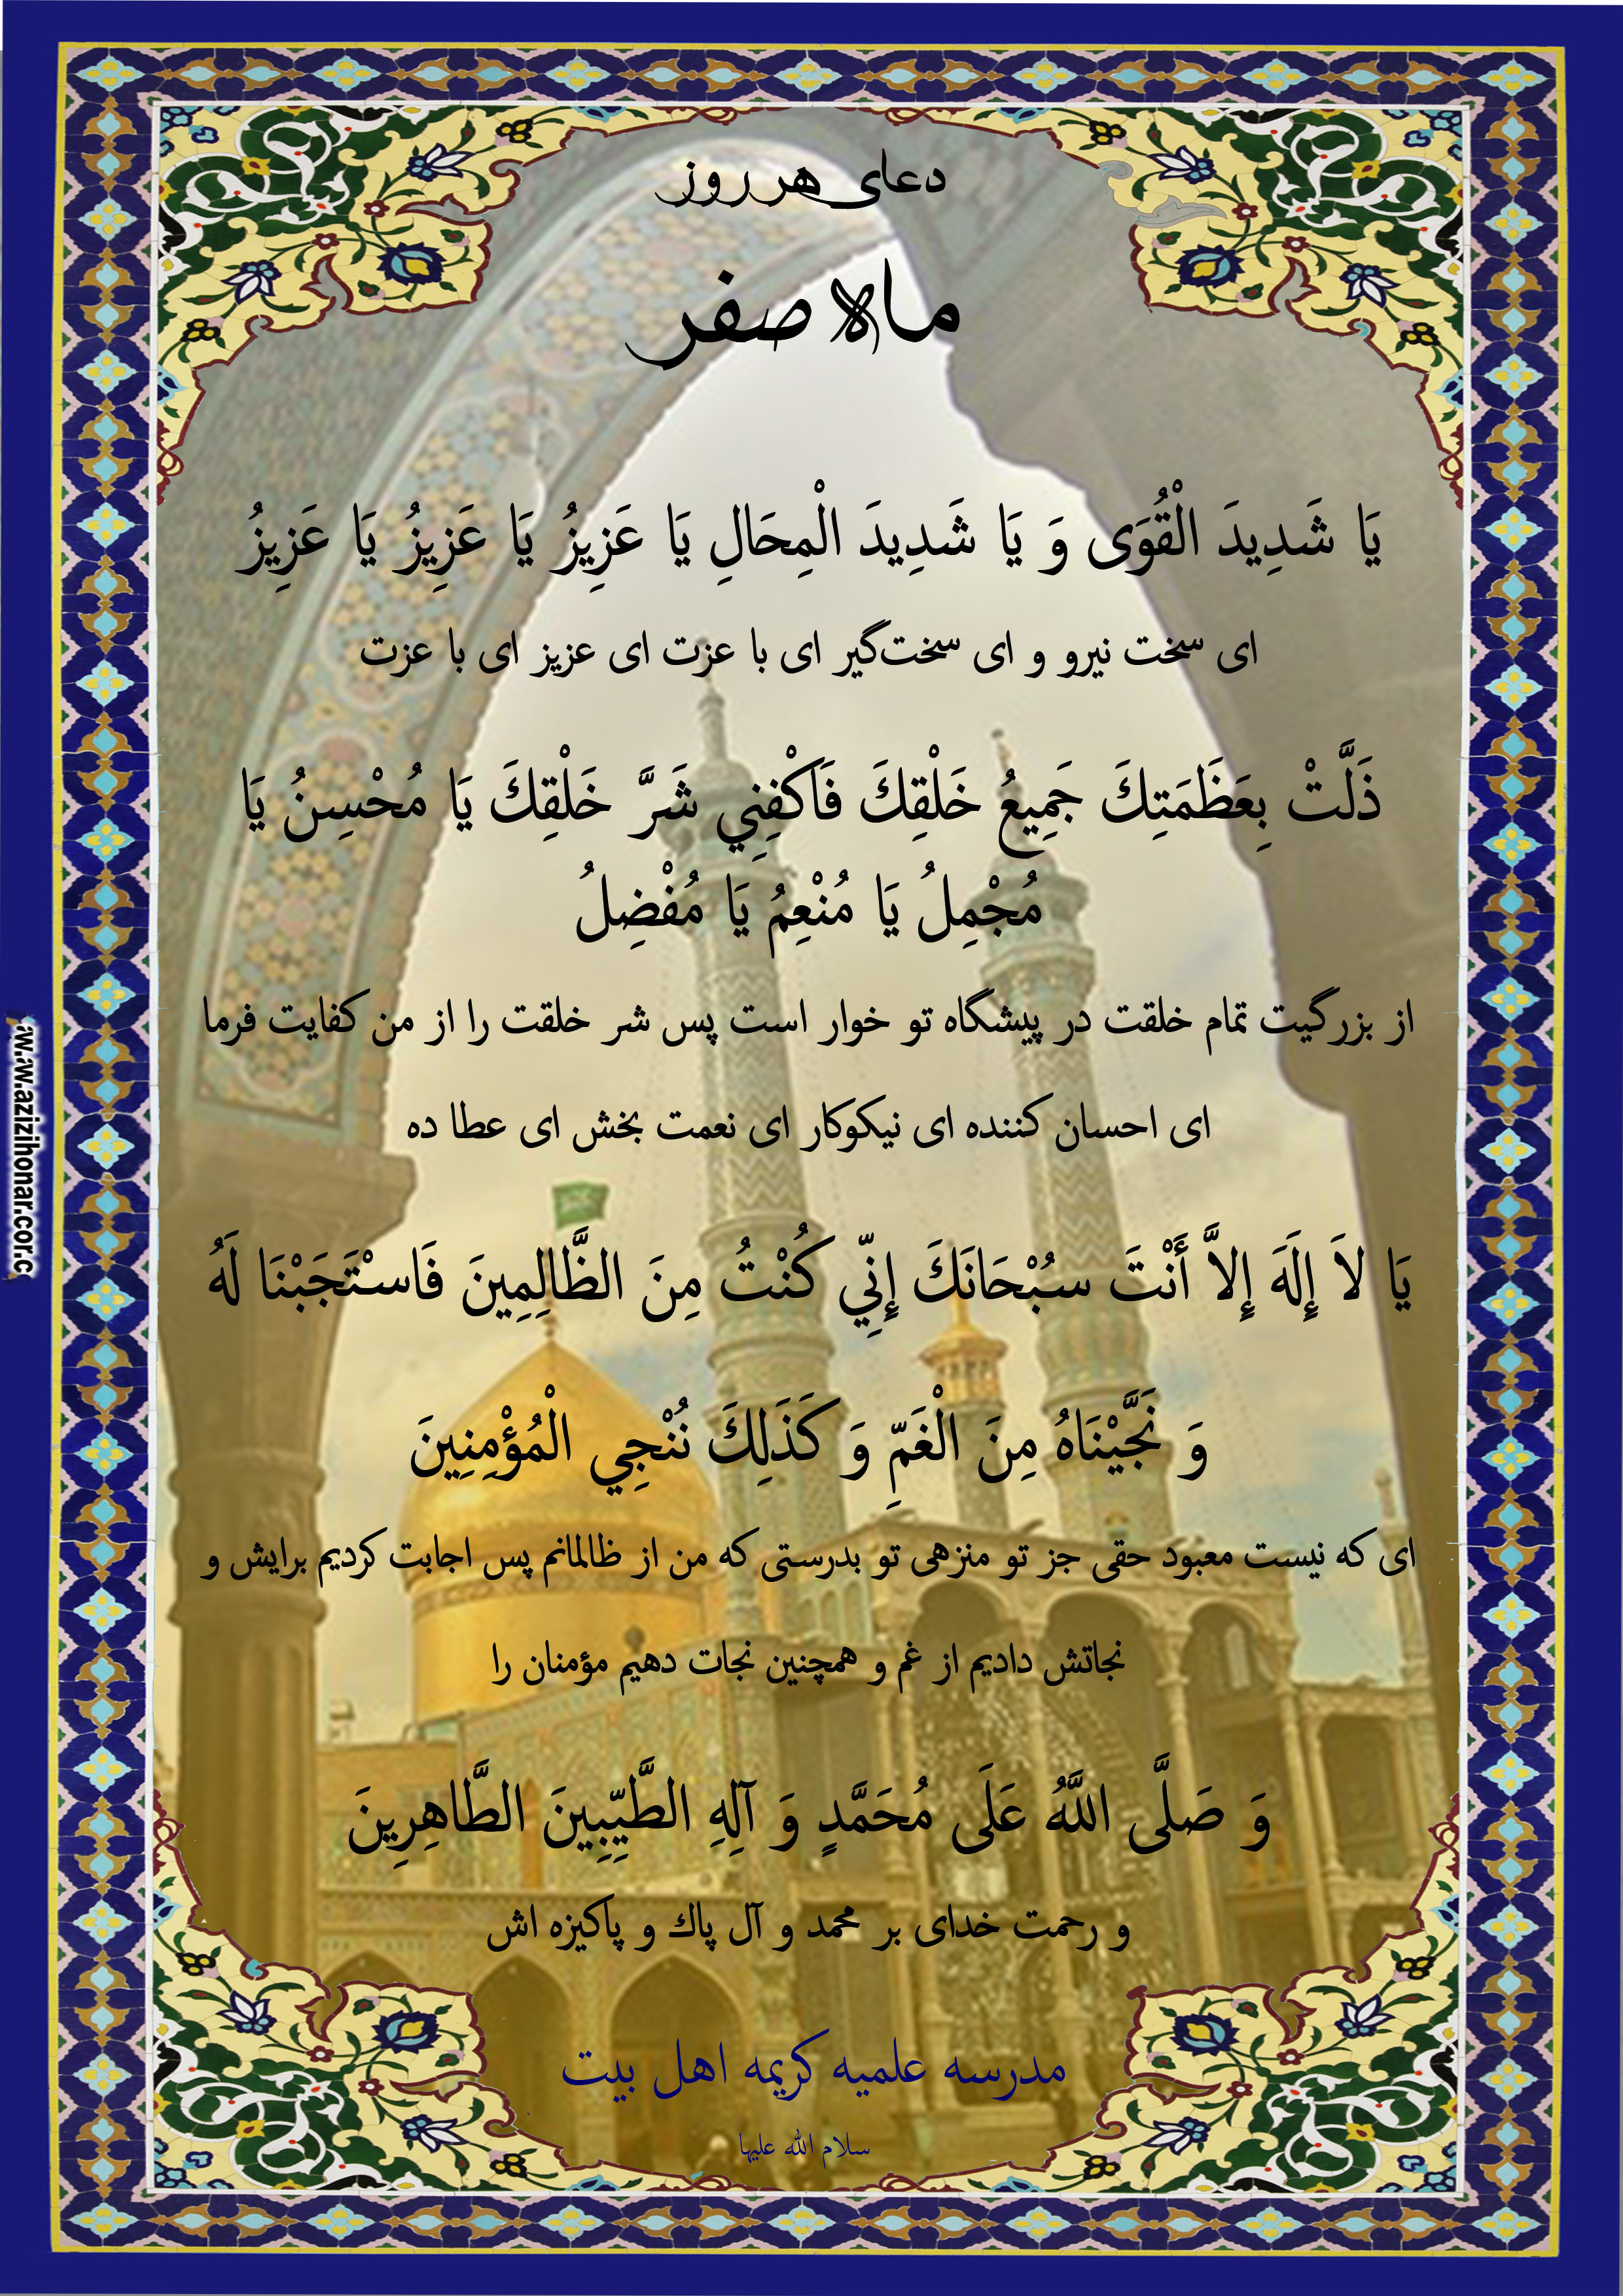 دعای هر روز
ماه صفر
يَا شَدِيدَ الْقُوَى وَ يَا شَدِيدَ الْمِحَالِ يَا عَزِيزُ يَا عَزِيزُ يَا عَزِيزُ
ای سخت نیرو و ای سخت‌گیر ای با عزت ای عزیز ای با عزت
ذَلَّتْ بِعَظَمَتِكَ جَمِيعُ خَلْقِكَ فَاكْفِنِي شَرَّ خَلْقِكَ يَا مُحْسِنُ يَا
مُجْمِلُ يَا مُنْعِمُ يَا مُفْضِلُ
از بزرگیت تمام خلقت در پیشگاه تو خوار است پس شر خلقت را از من کفایت فرما
ای احسان کننده ای نیکوکار ای نعمت بخش ای عطا ده
يَا لاَ إِلَهَ إِلاَّ أَنْتَ سُبْحَانَكَ إِنِّي كُنْتُ مِنَ الظَّالِمِينَ فَاسْتَجَبْنَا لَهُ
وَ نَجَّيْنَاهُ مِنَ الْغَمِّ وَ كَذَلِكَ نُنْجِي الْمُؤْمِنِينَ
ای که نیست معبود حقی جز تو منزهی تو بدرستی که من از ظالمانم پس اجابت کردیم برایش و
نجاتش دادیم از غم و همچنین نجات دهیم مؤمنان را
وَ صَلَّى اللَّهُ عَلَى مُحَمَّدٍ وَ آلِهِ الطَّيِّبِينَ الطَّاهِرِينَ
و رحمت خدای بر محمد و آل پاك و پاکیزه اش
مدرسه علمیه کریمه اهل بیت
سلام الله علیها
w.azizihonar.cor.c